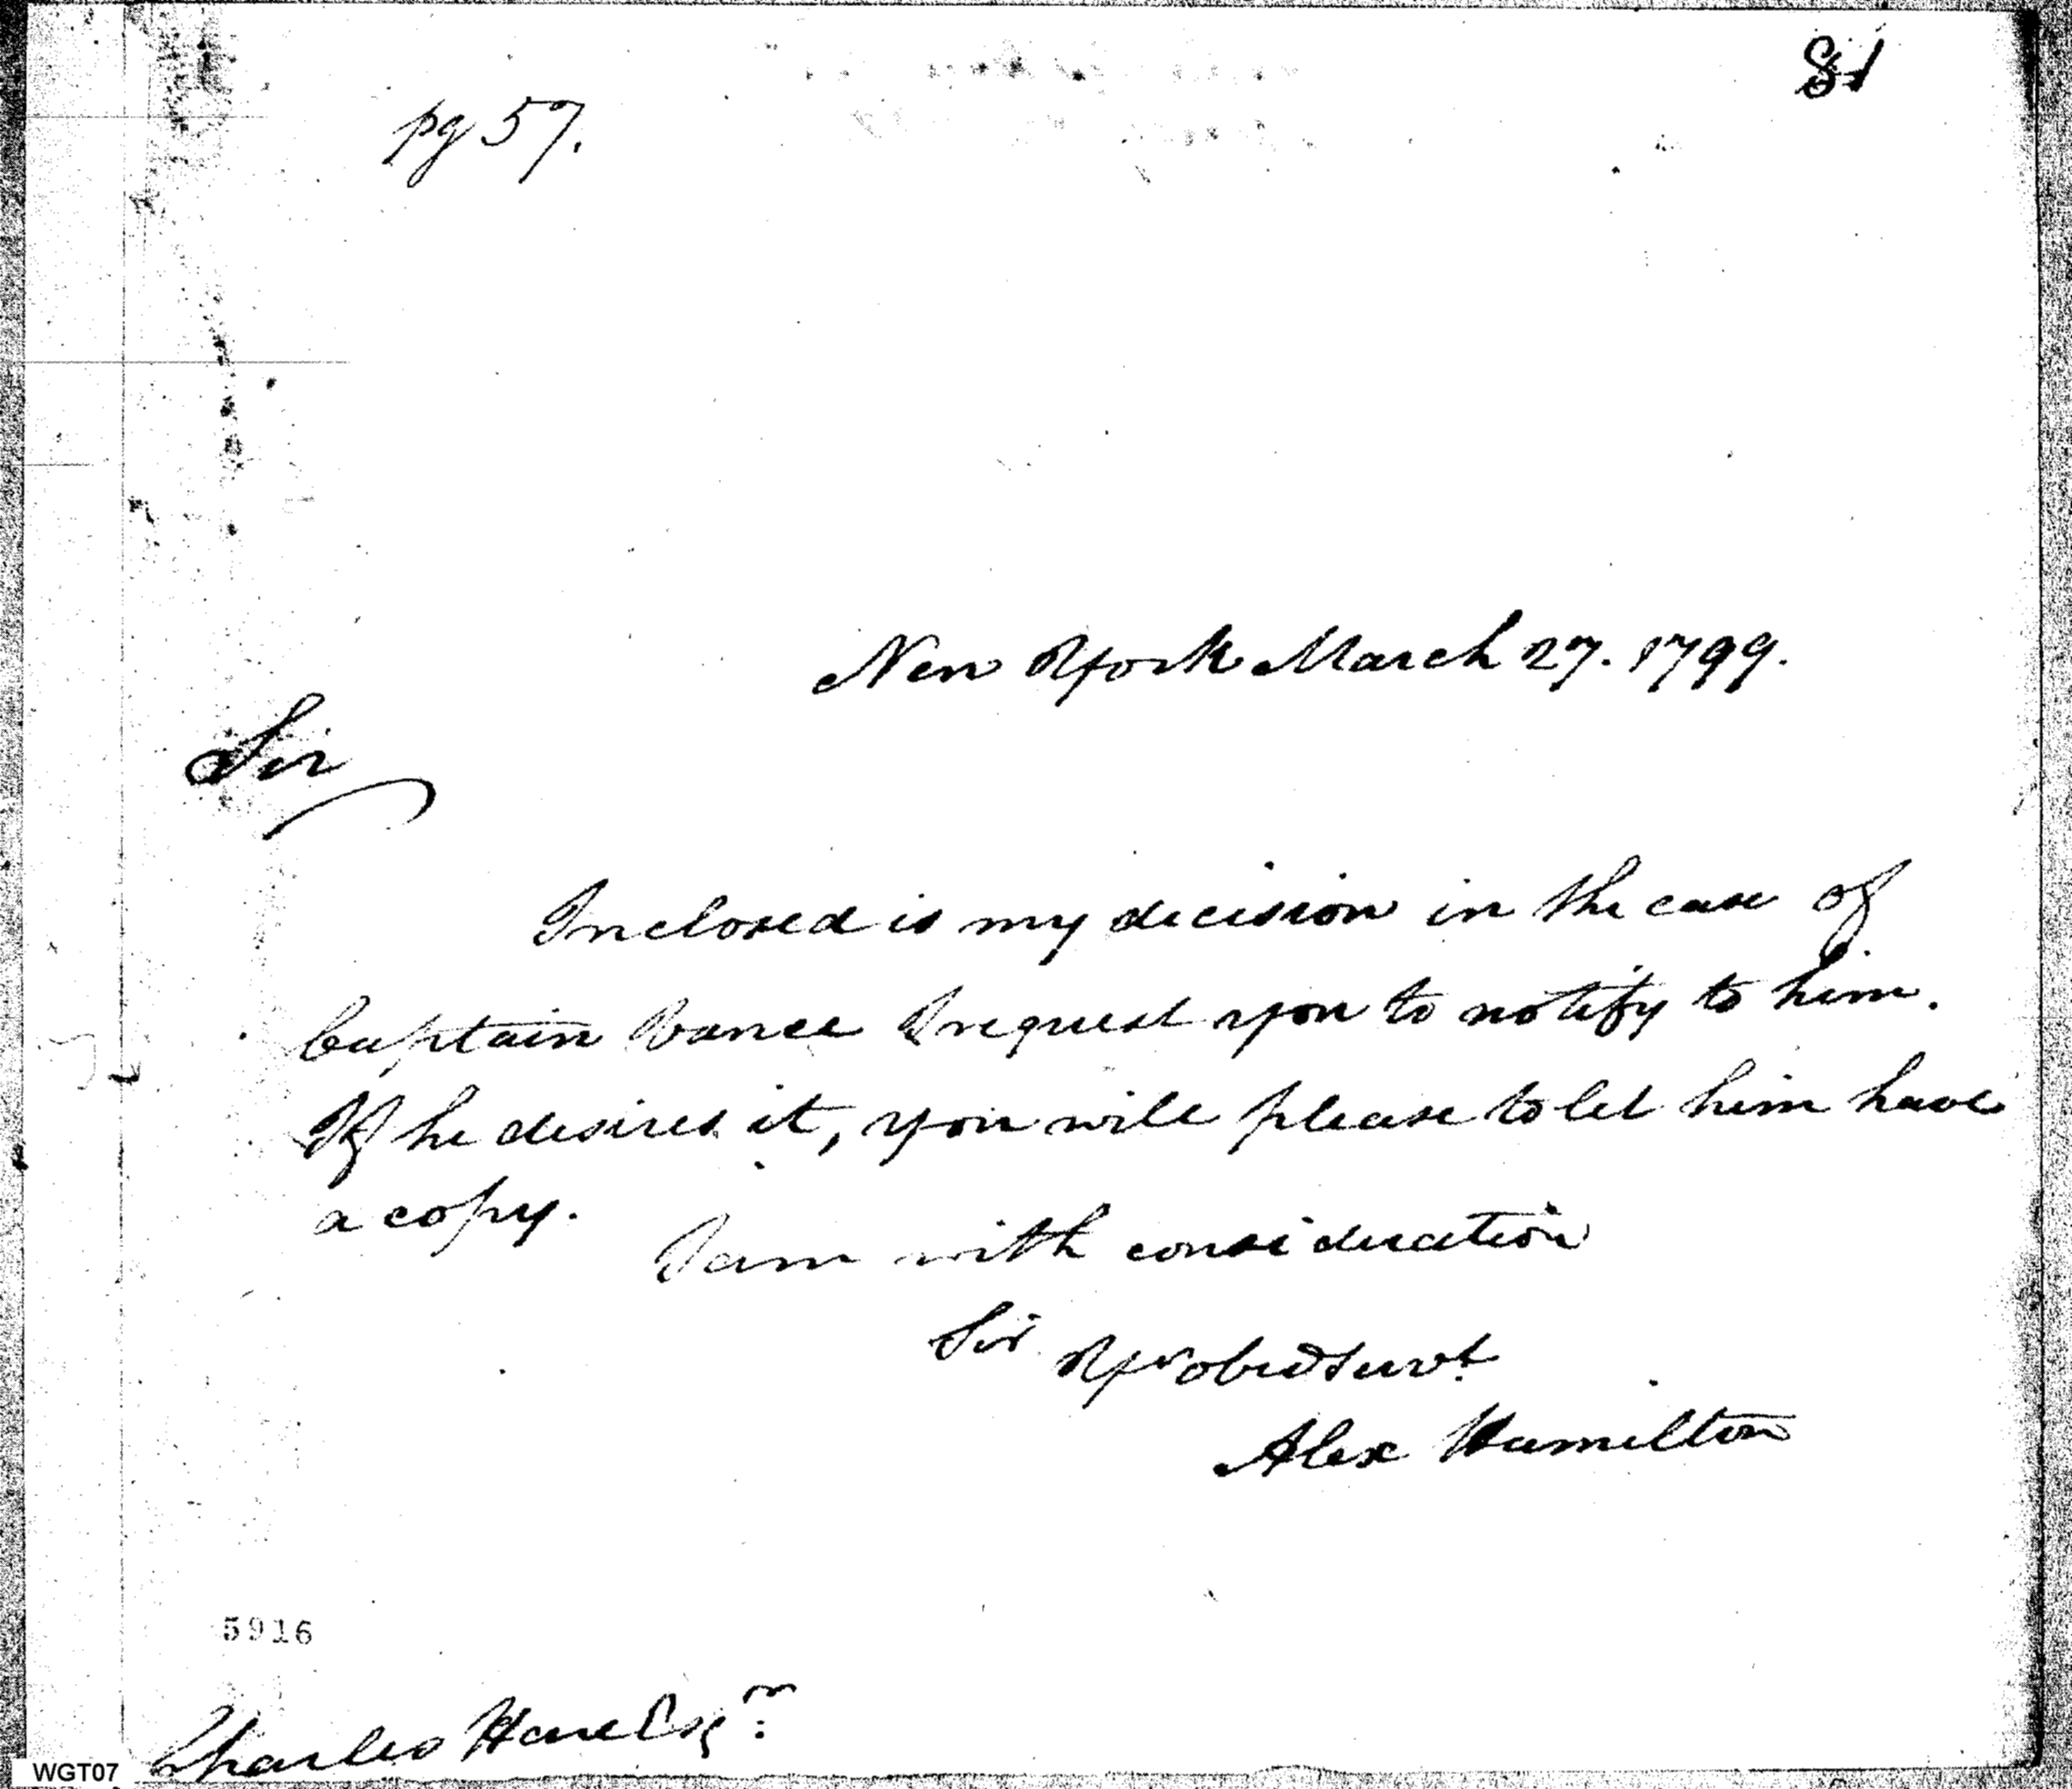 81
pg 57.
New York March 27. 1799.
Sir
Inclosed is my decision in the case of
Captain Vance I request you to notify to him.
If he desires it, you will please to let him have
a copy.
I am with consideration
Sir
Yr obed servt.
Alex Hamilton
5916
Charles Hare Esqr:
WGT07